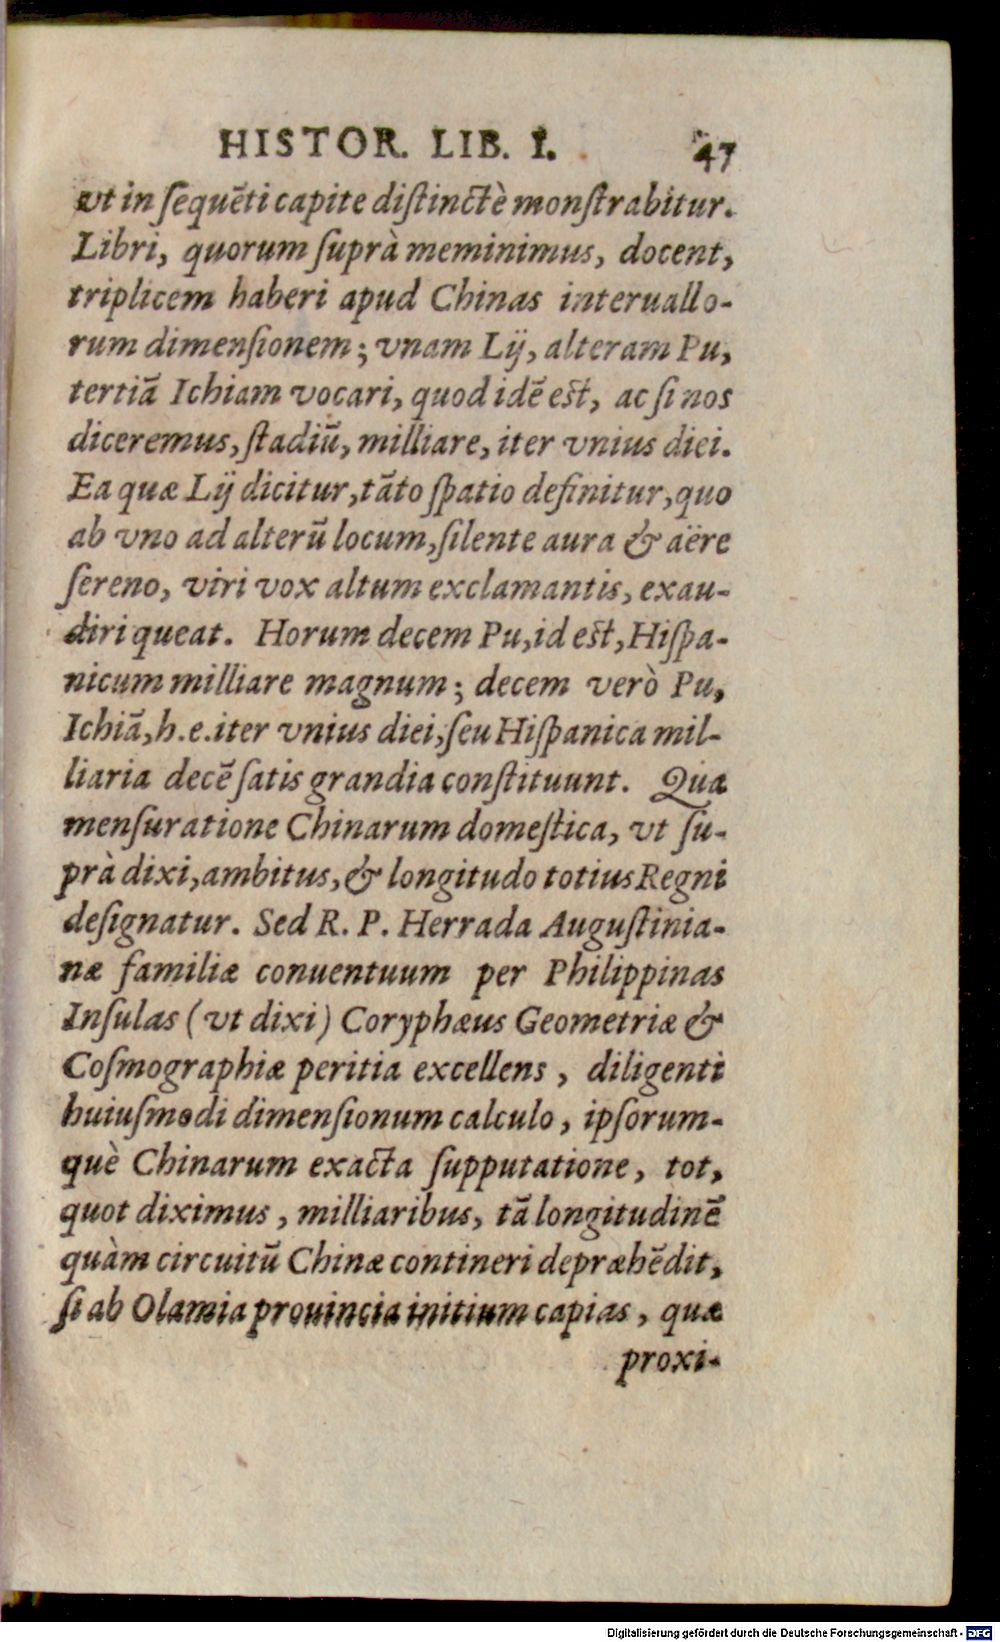 HISTOR. LIB. I. 47
vt in ſequẽti capite diſtinctè monſtrabitur.
Libri, quorum ſuprà meminimus, docent,
triplicem haberi apud Chinas interuallo-
rum dimenſionem; vnam Lij, alteram Pu,
tertiã Ichiam vocari, quod idẽ est, ac ſi nos
diceremus, ſtadiũ, milliare, iter vnius diei.
Ea quæ Lij dicitur, tãto ſpatio definitur, quo
ab vno ad alterũ locum, ſilente aura & aëre
ſereno, viri vox altum exclamantis, exau-
diri queat. Horum decem Pu, id est, Hiſpa-
nicum milliare magnum; decem verò Pu,
Ichiã, h.e. iter vnius diei, ſeu Hiſpanica mil-
liaria decẽ ſatis grandia conſtituunt. Qua
menſuratione Chinarum domeſtica, vt ſu-
prà dixi, ambitus, & longitudo totius Regni
deſignatur. Sed R. P. Herrada Auguſtinia-
næ familiæ conuentuum per Philippinas
Inſulas (vt dixi) Coryphæus Geometriæ &
Coſmographiæ peritia excellens, diligenti
huiuſmodi dimenſionum calculo, ipſorum-
què Chinarum exacta ſupputatione, tot,
quot diximus, milliaribus, tã longitudinẽ
quàm circuitũ Chinæ contineri depræhẽdit,
ſi ab Olamia prouincia initium capias, quæ
proxi-
Digitalisierung gefördert durch die Deutsche Forschungsgemeinschaft - DFG